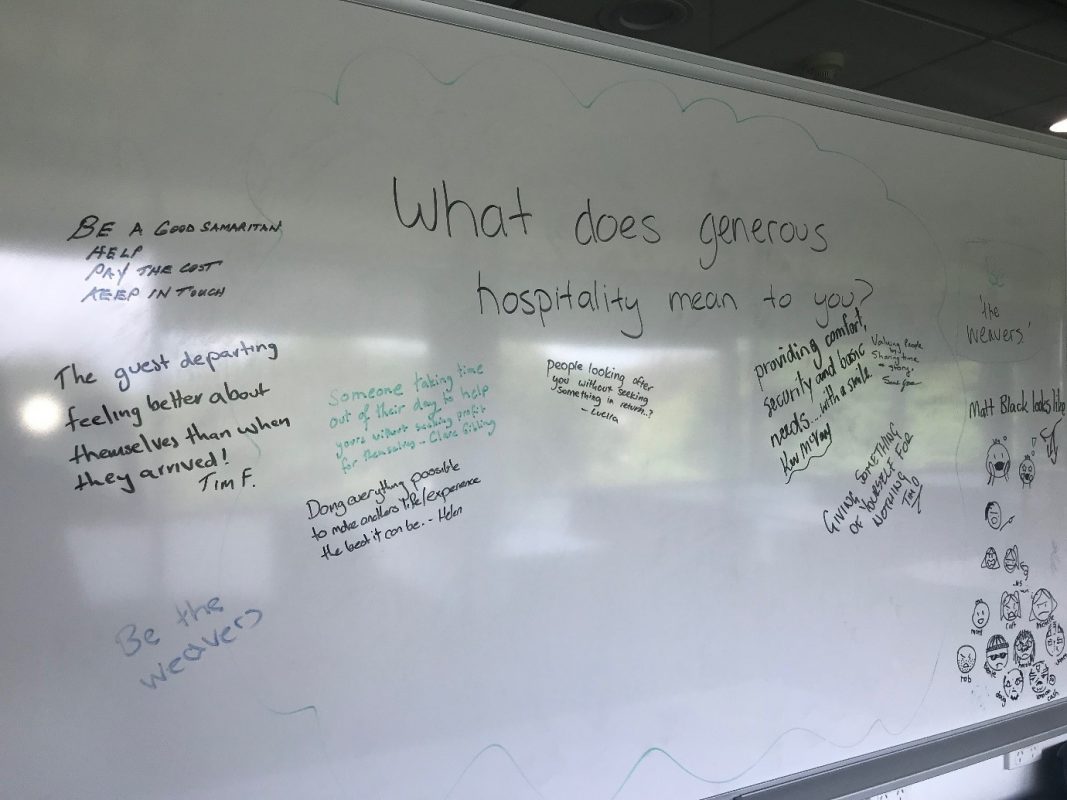 What does generous
hospitality mean to you?
BE A GOOD SAMARITAN
HELP
PAY THE COST
KEEP IN TOUCH
The guest departing
feeling better about
themselves than when
they arrived!
Tim F.
Someone taking time
out of their day to help
yours without seeking profit
for themselves - Claire
Doing everything possible
to make anothers life/experience
the best it can be. - Helen
people looking after
you without seeking
something in return.?
- Luella
providing comfort,
security and basic
needs... with a smile.
Valuing People
by
Sharing time
GIVING SOMETHING
OF YOURSELF FOR
NOTHING
TIM D
Be the
weavers
be
'the
weavers'
Matt Black looks like
rob